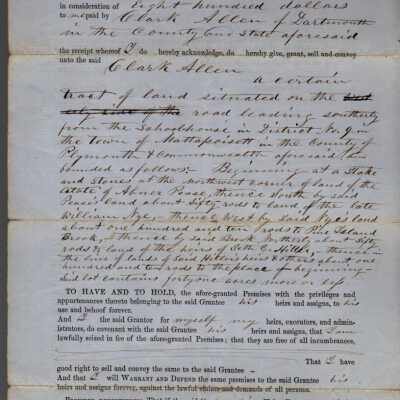 in consideration of Eight hundred dollars
to me paid by Clark Allen of Dartmouth
in the County and State aforesaid
the receipt whereof I do hereby acknowledge, do hereby give, grant, sell and convey
unto the said
Clark Allen
A certain
tract of land situated on the West
erly side of the road leading southerly
from the Schoolhouse in District No. 9 in
the town of Mattapoisett in the County of
Plymouth & Commonwealth aforesaid and
bounded as follows;- Beginning at a Stake
and Stones at the Northwest corner of land of the
Estate of Abner Pease, thence South by said
Pease's land about Sixty rods to land of the late
William Nye, thence West by Said Nye's land
about one hundred and ten rods to Pine Island
Brook, thence by said Brook Northerly about Fifty
rods to land of the heirs of Seth C. Hiller, thence in
the line of lands of Said Hiller's heirs & others about one
hundred and ten rods to the place of beginning
Said lot contains forty one acres more or less
TO HAVE AND TO HOLD, the afore-granted Premises with the privileges and
appurtenances thereto belonging to the said Grantee his heirs and assigns, to his
use and behoof forever.
And I the said Grantor for myself my heirs, executors, and admin-
istrators, do covenant with the said Grantee his heirs and assigns, that I am
lawfully seized in fee of the afore-granted Premises; that they are free of all incumbrances,
That I have
good right to sell and convey the same to the said Grantee
And that I will WARRANT AND DEFEND the same premises to the said Grantee his
heirs and assigns forever, against the lawful claims and demands of all persons.